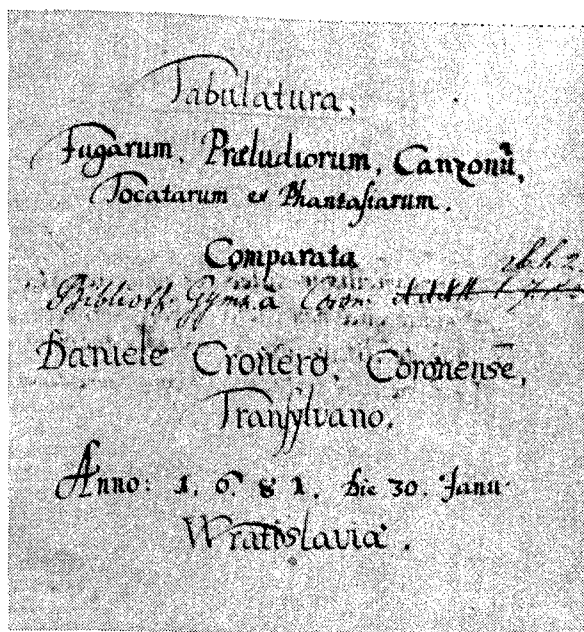 Tabulatura,
Fugarum, Præludiorum, Canzonū,
Tocatarum et Phantasiarum.
Comparata
Biblioth. Gymn. Coron.
à
Daniele Cronero, Coronense,
Transylvano.
Anno: 1. 6. 8 1. Die 30. Janu.
Wratislaviæ.